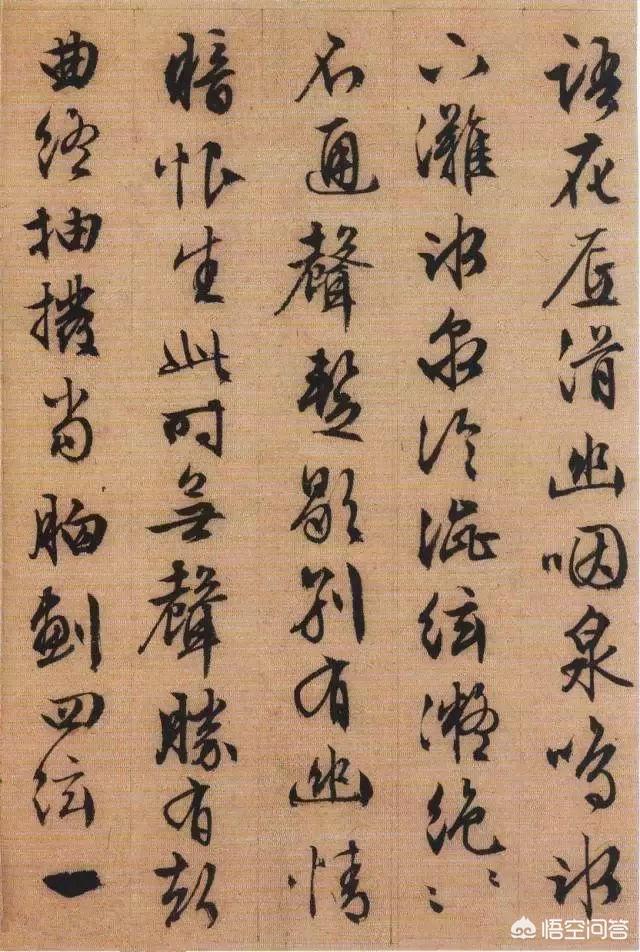 語花底滑幽咽泉鳴冰
下灘冰泉冷澀絃凝絶〻〻
不通聲暫歇別有幽情
暗恨生此時無聲勝有聲
曲終抽撥當胸劃四絃一
悟空问答